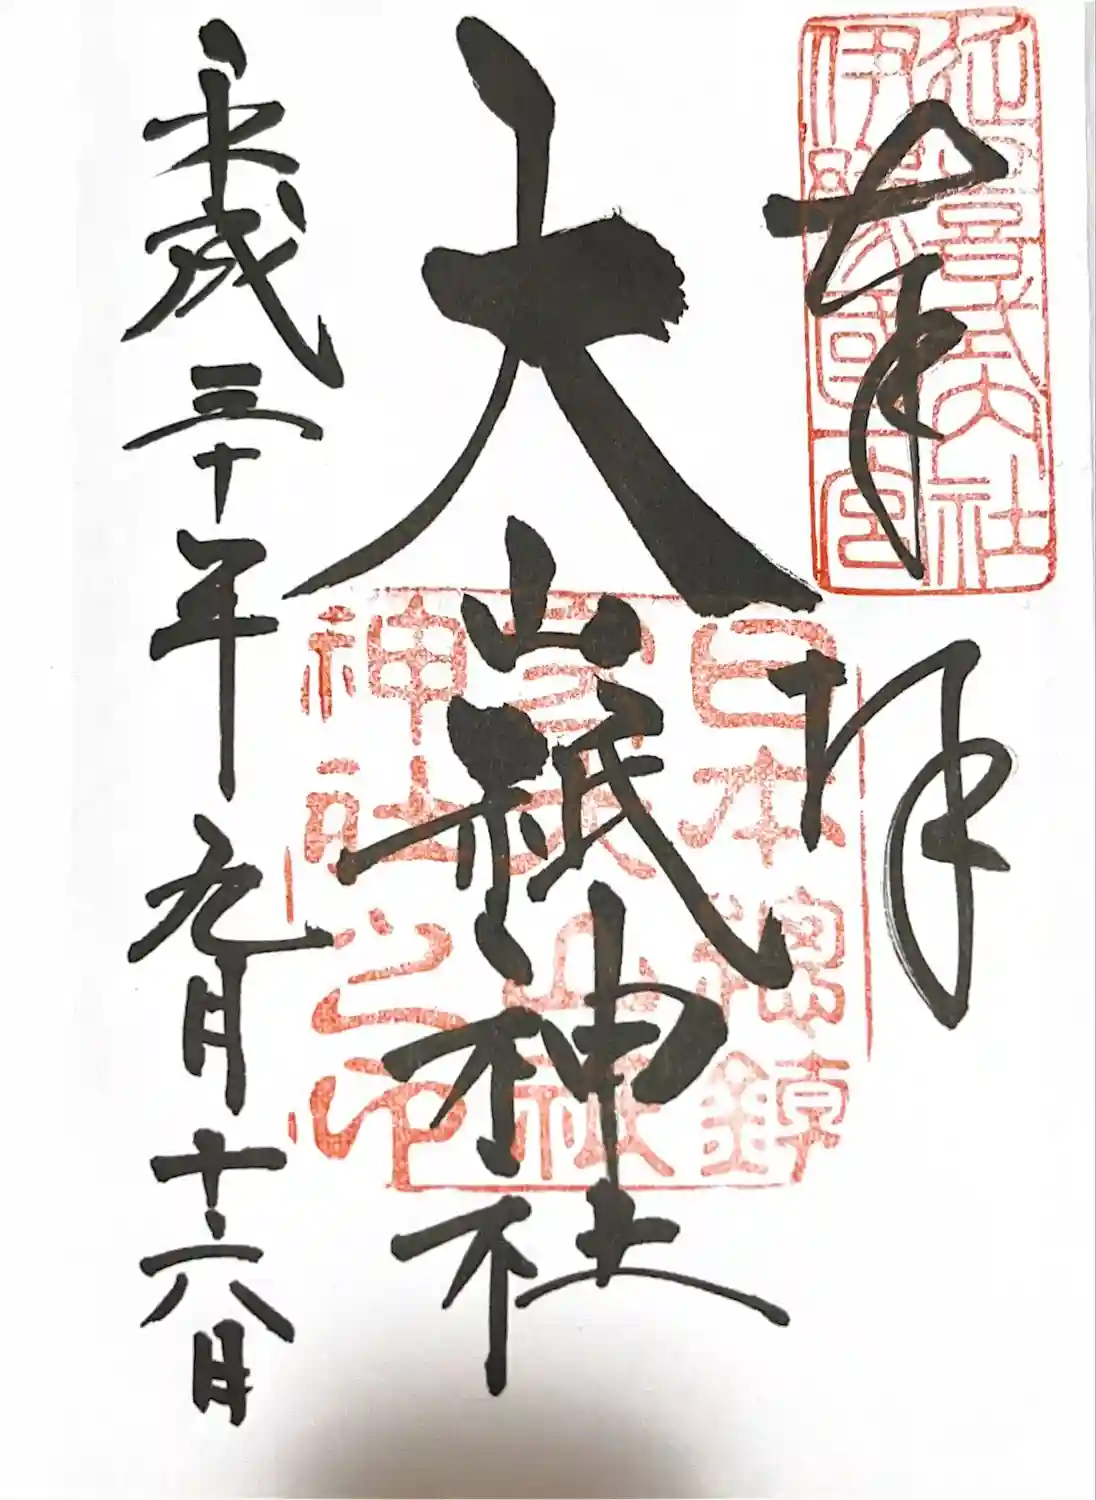 奉拝
延喜式内社
伊豫國一宮
大山祇神社
日本總鎮
守大山祇
神社之印
平成三十年九月十六日